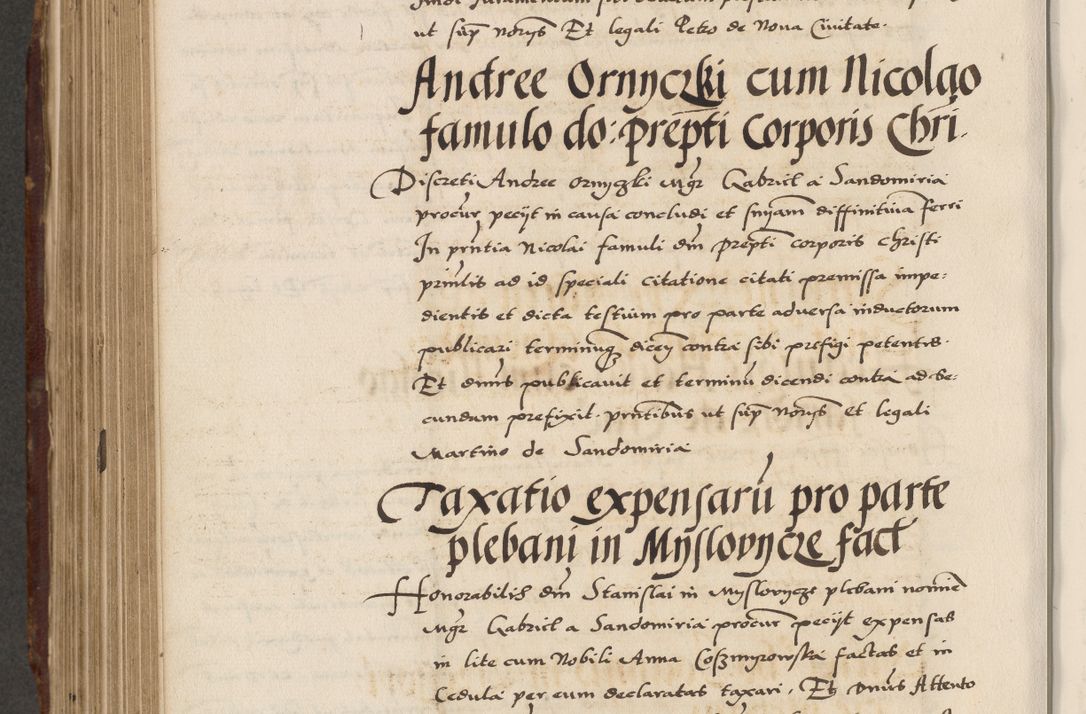 ut sup̄ norijs Et legali Petro de Nova Civitate.
Andree Ornyczki cum Nicolao
famulo do: prep̄ti Corporis Chri.
Discreti Andree ornyczki Mgr̄ Gabriel a Sandomiria
procur̄ pecijt in causa concludi et sn̄iam diffinitiva ferri
In pn̄tia Nicolai famuli dn̄i prep̄ti corporis christi
ad id speciali citatione citati premissa impe:
dientis et dicta testium pro parte adversa inductorum
publicari terminumq̄ dicen̄ contra sibi prefigi petentis.
Et dn̄us publicavit et terminū dicendi contra ad se:
cundum prefixit. pn̄tibus ut sup̄ norijs et legali
Martino de Sandomiria
Taxatio expensarū pro parte
plebani in Myslovycze fact
Honorabilis dn̄i Stanislai in Myslovycze plebani nomine
Mgr̄ Gabriel a Sandomiria procur̄ pecijt expensas
in lite cum Nobili Anna Coszmyrowska factas et in
Cedula per eum declaratas taxari. Et Dn̄us Attento